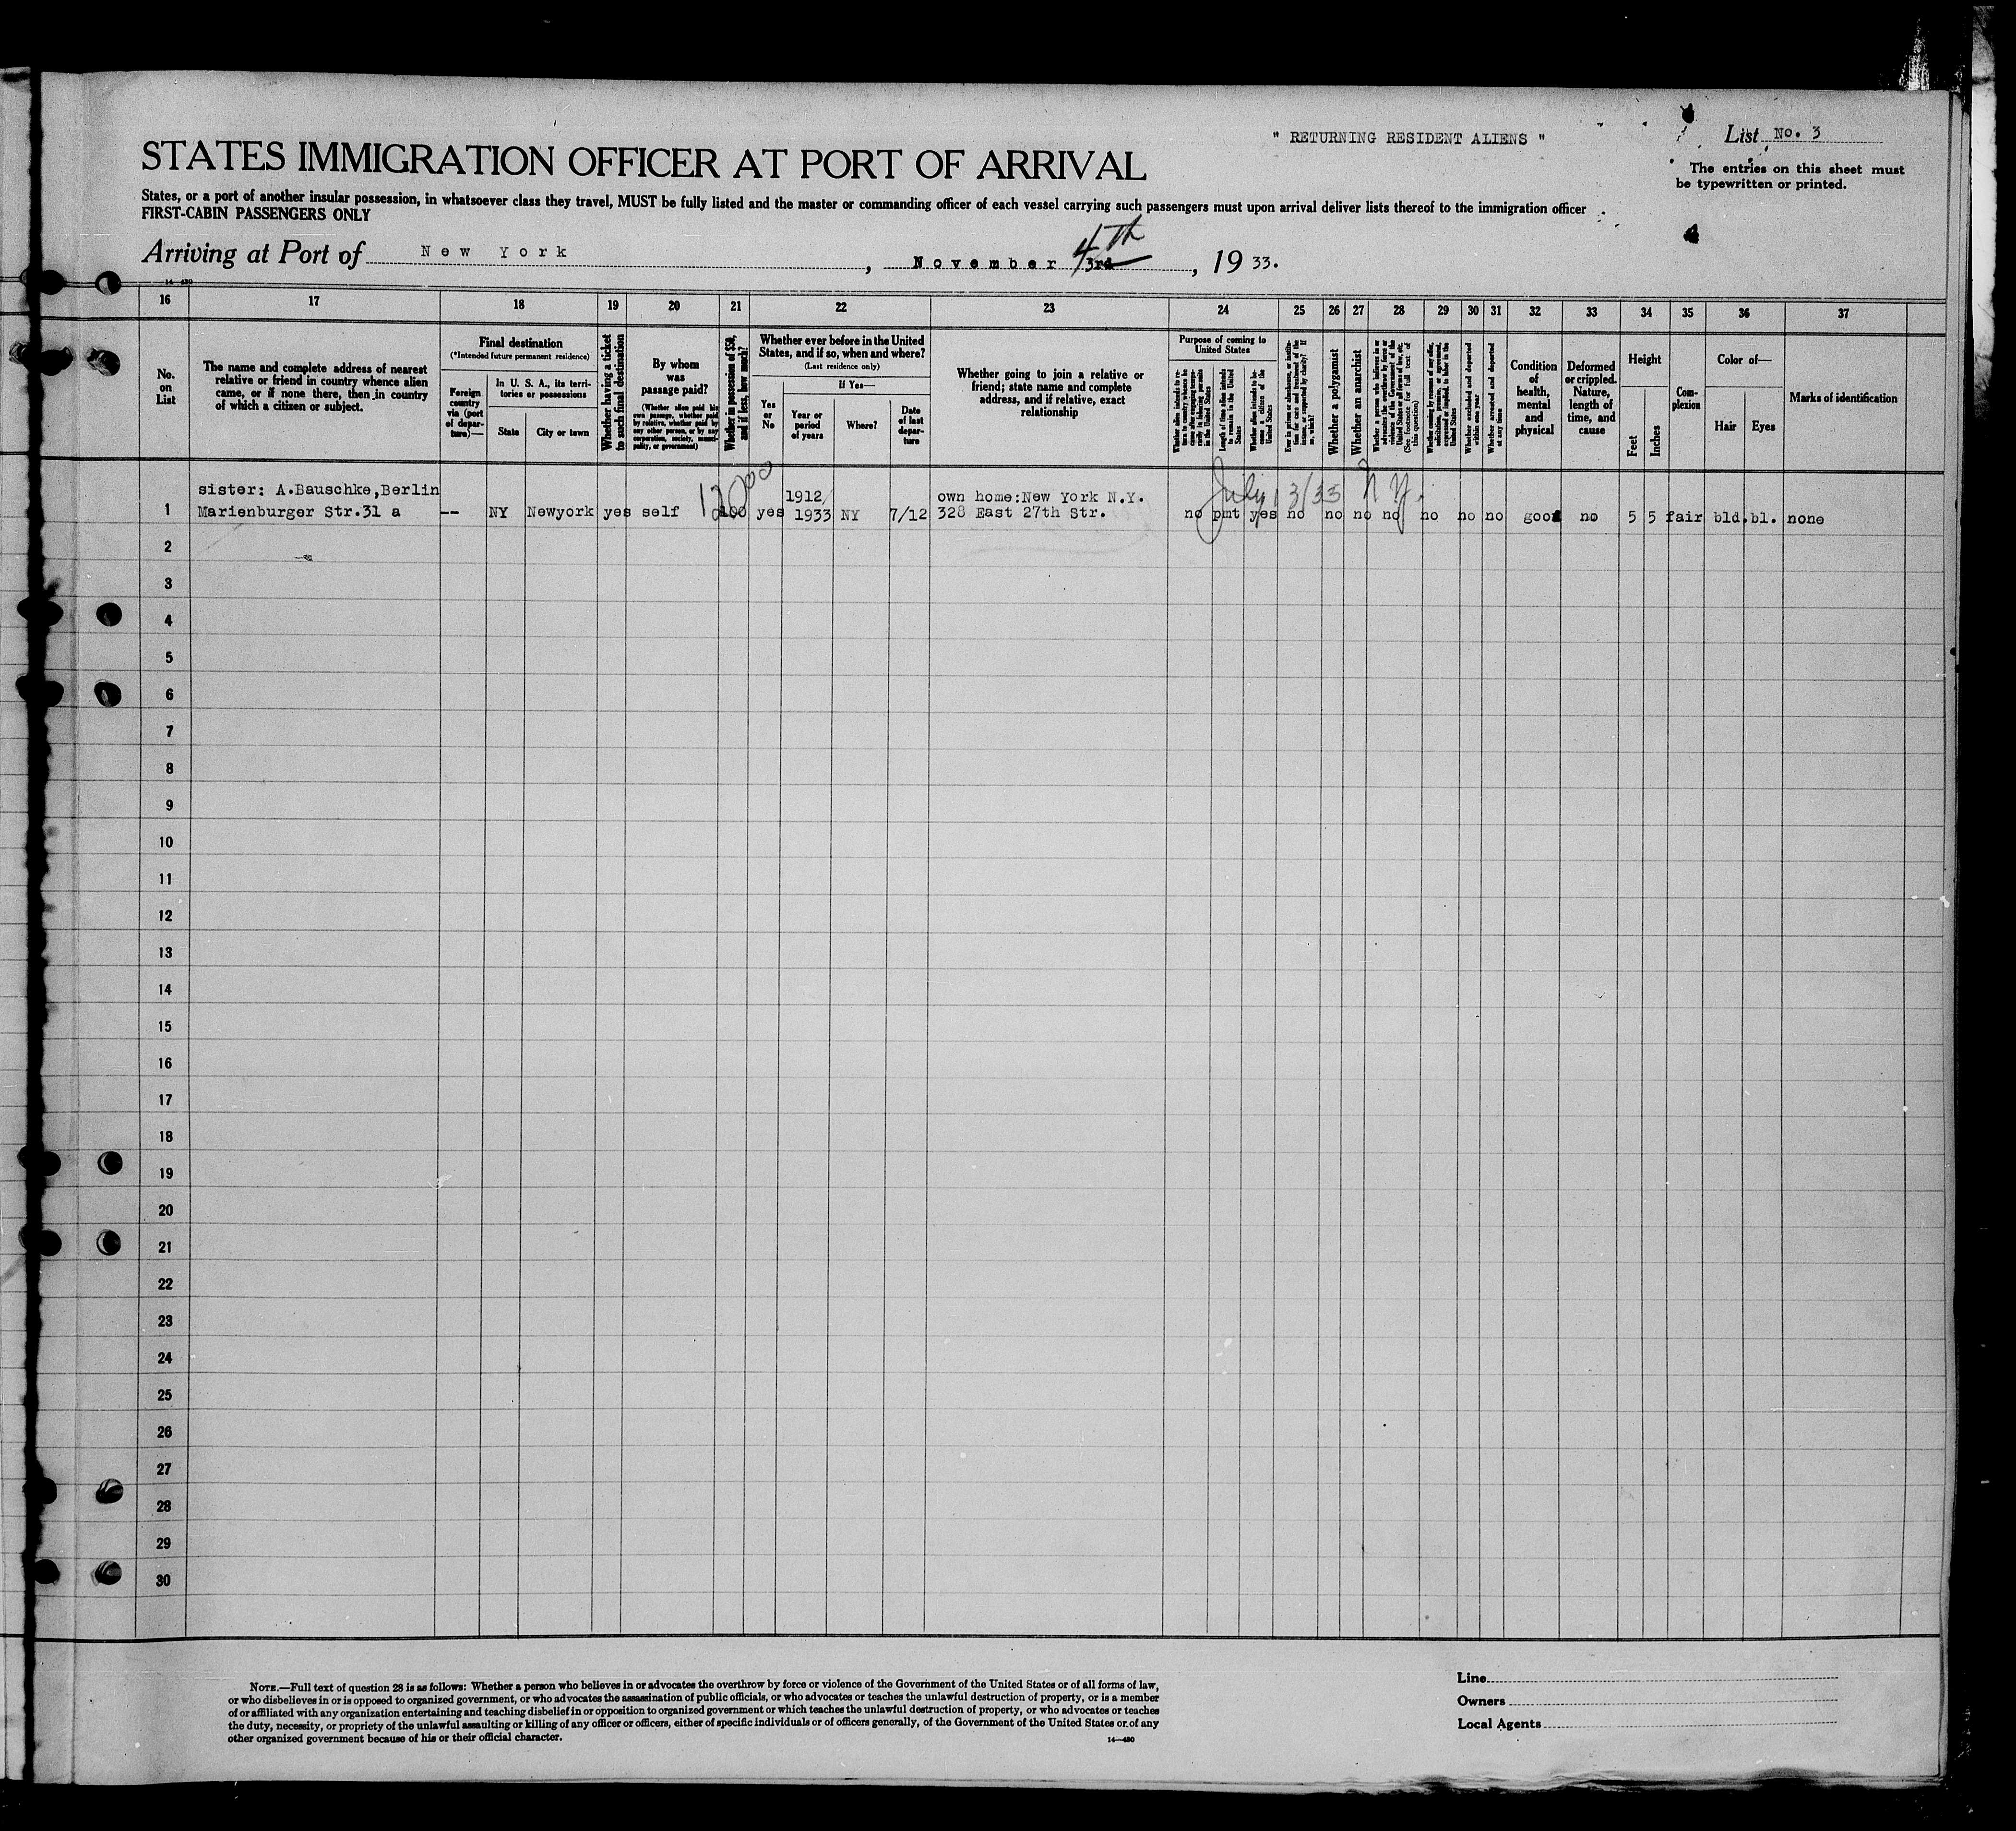 " RETURNING RESIDENT ALIENS "
List No. 3
STATES IMMIGRATION OFFICER AT PORT OF ARRIVAL
The entries on this sheet must
be typewritten or printed.
States, or a port of another insular possession, in whatsoever class they travel, MUST be fully listed and the master or commanding officer of each vessel carrying such passengers must upon arrival deliver lists thereof to the immigration officer
FIRST-CABIN PASSENGERS ONLY
Arriving at Port of New York, November 3rd 4th, 1933.
14-430
16 17 18 19 20 21 22 23 24 25 26 27 28 29 30 31 32 33 34 35 36 37
No.
on
List
The name and complete address of nearest
relative or friend in country whence alien
came, or if none there, then in country
of which a citizen or subject.
Final destination
(*Intended future permanent residence)
Foreign
country
via (port
of depar-
ture)—
In U. S. A., its terri-
tories or possessions
State
City or town
Whether having a ticket
to such final destination
By whom
was
passage paid?
(Whether alien paid his
own passage, whether paid
by relative, whether paid by
any other person, or by any
corporation, society, munici-
pality, or government)
Whether in possession of $50,
and if less, how much?
Whether ever before in the United
States, and if so, when and where?
(Last residence only)
Yes
or
No
If Yes—
Year or
period
of years
Where?
Date
of last
depar-
ture
Whether going to join a relative or
friend; state name and complete
address, and if relative, exact
relationship
Purpose of coming to
United States
Whether alien intends to re-
turn to country whence he
came after engaging tempo-
rarily in laboring pursuits
in the United States
Length of time alien intends
to remain in the United
States
Whether alien intends to be-
come a citizen of the
United States
Ever in prison or almshouse, or institu-
tion for care and treatment of the
insane, or supported by charity? If
so, which?
Whether a polygamist
Whether an anarchist
Whether a person who believes in or
advocates the overthrow by force or
violence of the Government of the
United States or all forms of law, etc.
(See footnote for full text of
this question)
Whether coming by reason of any offer,
solicitation, promise, or agreement,
expressed or implied, to labor in the
United States
Whether excluded and deported
within one year
Whether arrested and deported
at any time
Condition
of
health,
mental
and
physical
Deformed
or crippled.
Nature,
length of
time, and
cause
Height
Feet
Inches
Com-
plexion
Color of—
Hair
Eyes
Marks of identification
120.00
July 13/33 N.Y.
sister: A.Bauschke,Berlin 1912/ own home:New York N.Y.
1 Marienburger Str.31 a -- NY Newyork yes self yes 1933 NY 7/12 328 East 27th Str. no pmt yes no no no no no no no good no 5 5 fair bld. bl. none
2
3
4
5
6
7
8
9
10
11
12
13
14
15
16
17
18
19
20
21
22
23
24
25
26
27
28
29
30
NOTE.—Full text of question 28 is as follows: Whether a person who believes in or advocates the overthrow by force or violence of the Government of the United States or of all forms of law,
or who disbelieves in or is opposed to organized government, or who advocates the assassination of public officials, or who advocates or teaches the unlawful destruction of property, or is a member
of or affiliated with any organization entertaining and teaching disbelief in or opposition to organized government or which teaches the unlawful destruction of property, or who advocates or teaches
the duty, necessity, or propriety of the unlawful assaulting or killing of any officer or officers, either of specific individuals or of officers generally, of the Government of the United States or of any
other organized government because of his or their official character.
14—430
Line
Owners
Local Agents